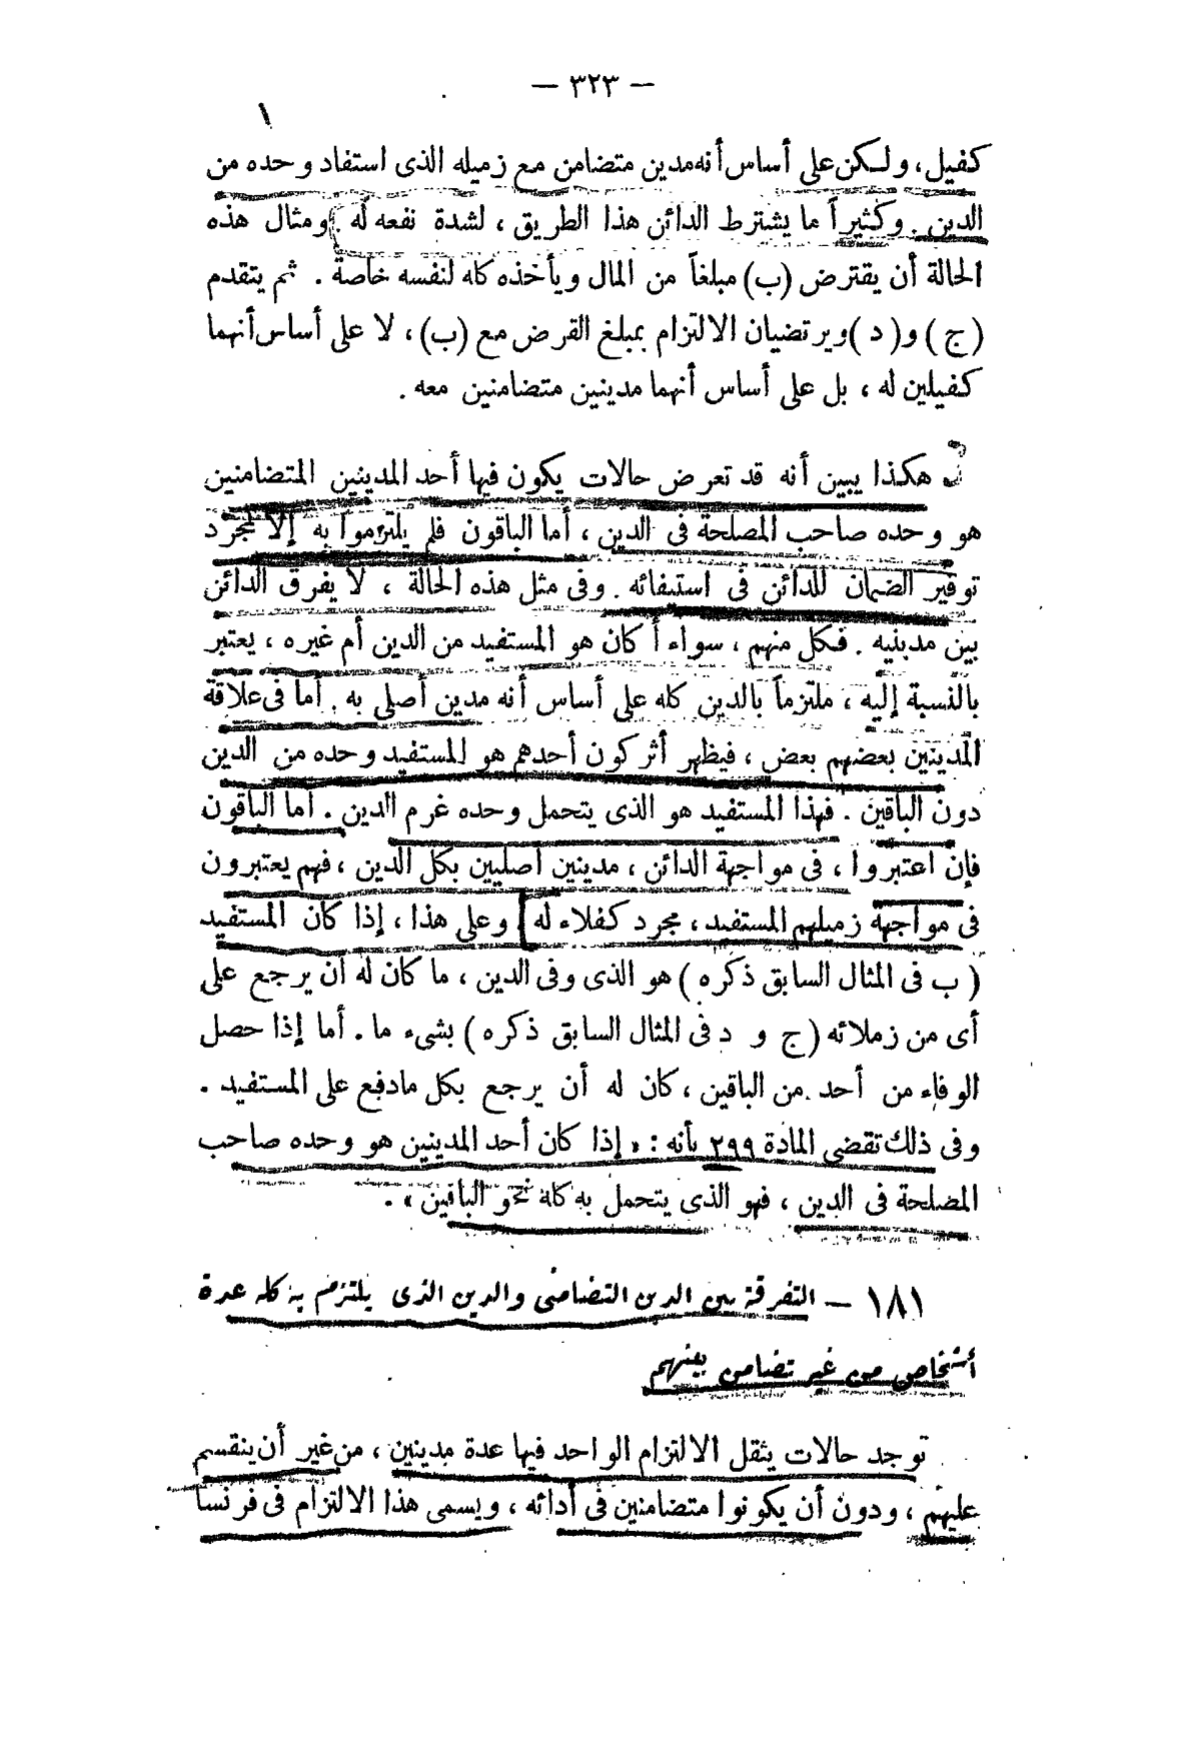 — ٣٢٣ —
١
كفيل، ولكن على أساس أنه مدين متضامن مع زميله الذى استفاد وحده من
الدين. وكثيراً ما يشترط الدائن هذا الطريق ، لشدة نفعه له . ومثال هذه
الحالة أن يقترض (ب) مبلغاً من المال ويأخذه كله لنفسه خاصة . ثم يتقدم
(ج) و( د ) ويرتضيان الالتزام بمبلغ القرض مع (ب)، لا على أساس أنهما
كفيلين له ، بل على أساس أنهما مدينين متضامنين معه .
هكذا يبين أنه قد تعرض حالات يكون فيها أحد المدينين المتضامنين
هو وحده صاحب المصلحة فى الدين ، أما الباقون فلم يلتزموا به إلا لمجرد
توفير الضمان للدائن فى استيفائه . وفى مثل هذه الحالة ، لا يفرق الدائن
بين مدينيه . فكل منهم ، سواء أكان هو المستفيد من الدين أم غيره ، يعتبر
بالنسبة إليه ، ملتزماً بالدين كله على أساس أنه مدين أصلى به . أما فى علاقة
المدينين بعضهم بعض ، فيظهر أثر كون أحدهم هو المستفيد وحده من الدين
دون الباقين . فهذا المستفيد هو الذى يتحمل وحده غرم الدين . أما الباقون
فإن اعتبروا ، فى مواجهة الدائن ، مدينين أصليين بكل الدين ، فهم يعتبرون
فى مواجهة زميلهم المستفيد ، مجرد كفلاء له ] وعلى هذا ، إذا كان المستفيد
( ب فى المثال السابق ذكره ) هو الذى وفى الدين ، ما كان له أن يرجع على
أى من زملائه ( ج و د فى المثال السابق ذكره ) بشىء ما . أما إذا حصل
الوفاء من أحد من الباقين ، كان له أن يرجع بكل مادفع على المستفيد .
وفى ذلك تقضى المادة ٢٩٩ بأنه : « إذا كان أحد المدينين هو وحده صاحب
المصلحة فى الدين ، فهو الذى يتحمل به كله نحو الباقين » .
١٨١ — التفرقة بين الدين التضامنى والدين الذى يلتزم به كله عدة
أشخاص من غير تضامن بينهم
توجد حالات يثقل الالتزام الواحد فيها عدة مدينين ، من غير أن ينقسم
عليهم ، ودون أن يكونوا متضامنين فى أدائه ، ويسمى هذا الالتزام فى فرنسا